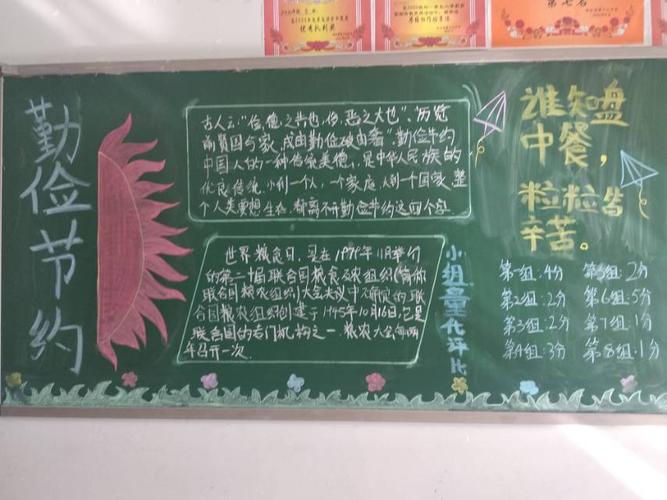 优秀队列奖
第七名
勤俭节约
古人云："俭,德之共也,侈,恶之大也",历览
前贤国与家,成由勤俭破由奢"勤俭节约
中国人的一种传统美德,是中华人民族的
优良传统,小到一个人,一个家庭,大到一个国家,整
个人类要想生存,都离不开勤俭节约这四个字
世界粮食日,是在1979年11月举约
的第二十届联合国粮食及农组织(简称
联合国粮农组织)大会决议中确定的,联
合国粮农组织创建于1945年10月16日,它是
联合国的专门机构之一,粮农大会每两
年召开一次.
小组量化评比
谁知盘
中餐，
粒粒皆
辛苦。
第一组:4分 第5组:2分
第2组:2分 第6组:5分
第3组:2分 第7组:1分
第4组:3分 第8组:1分